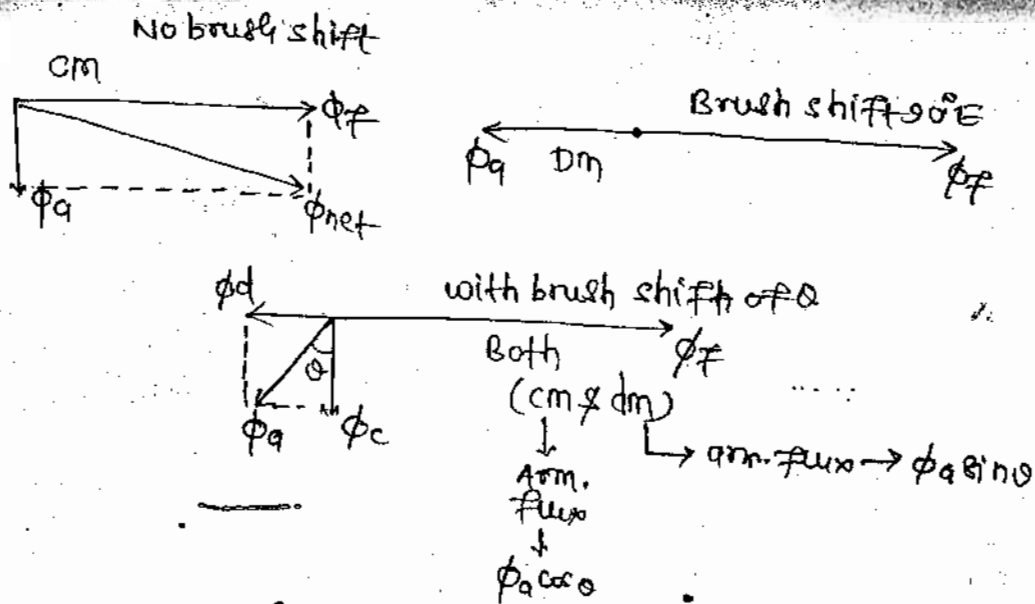 No brush shift
CM
ϕf
ϕa
ϕnet
Brush shift 90°E
ϕa
DM
ϕf
ϕd
with brush shift of θ
ϕf
θ
ϕa
ϕc
Both
(cm & dm)
↓
Arm.
flux
↓
ϕa cos θ
→ arm. flux → ϕa sin θ